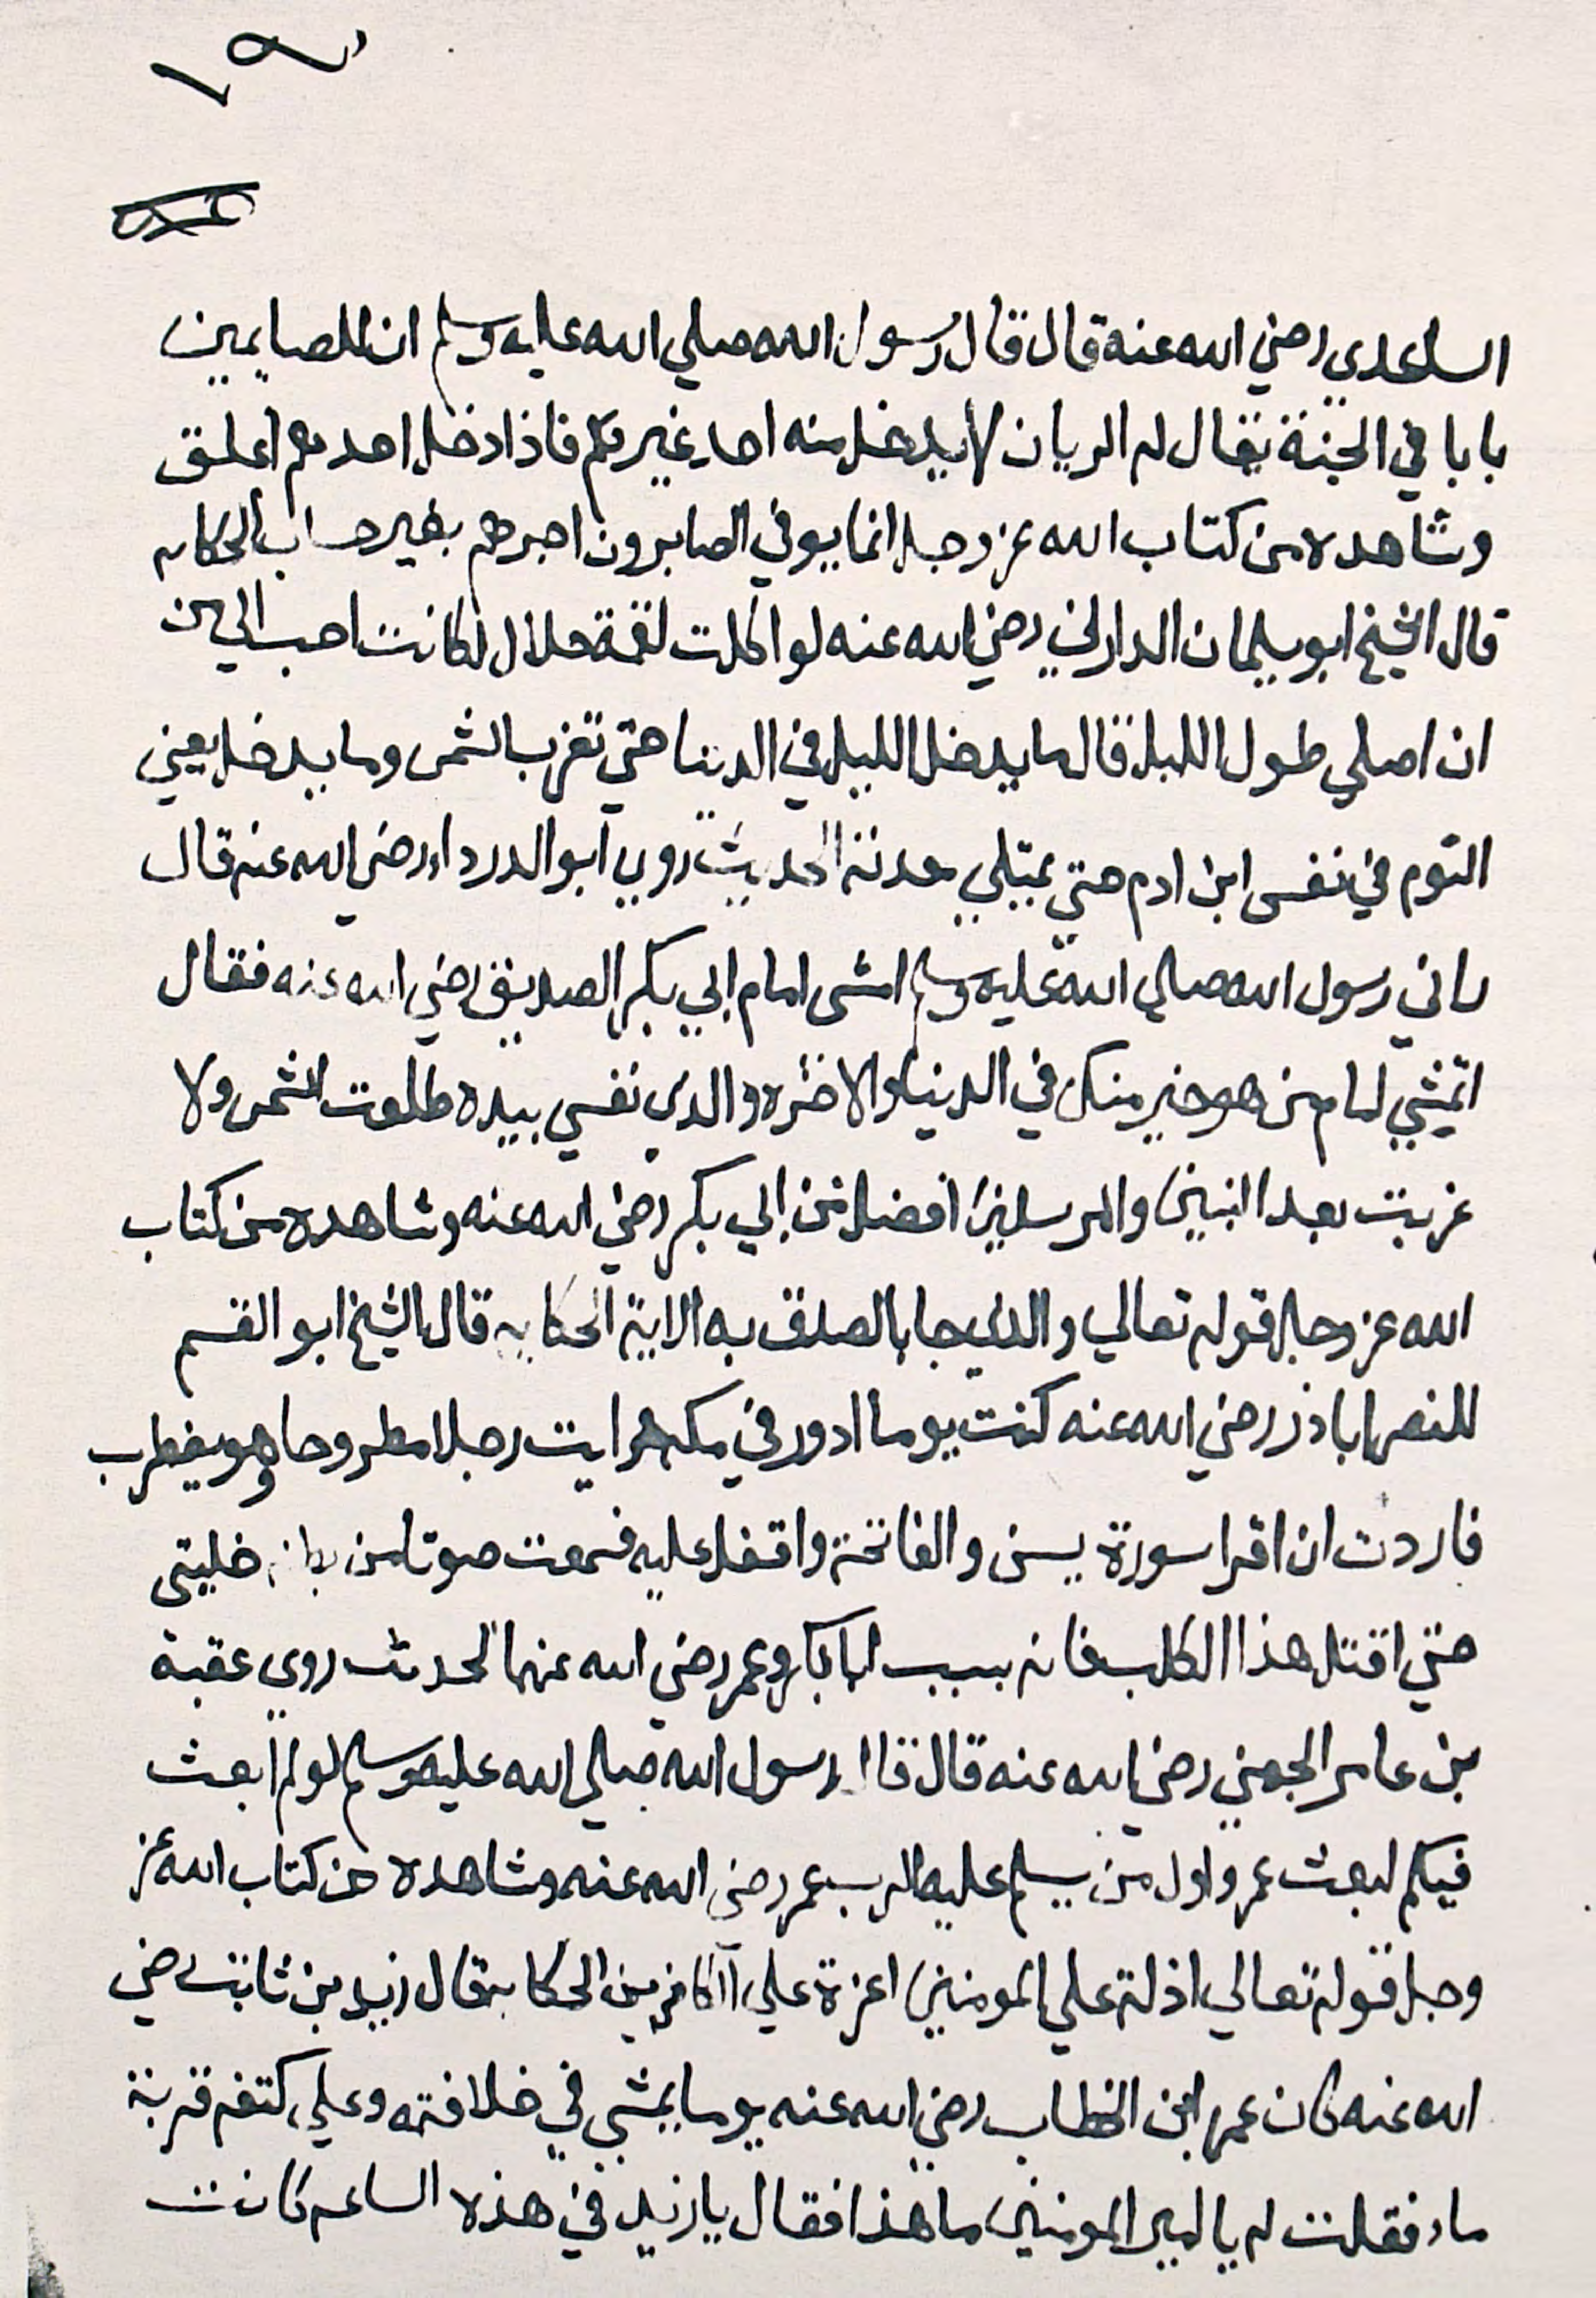 الساعدي رضي الله عنه قال قال رسول الله صلي الله عليه وسلم ان للصايمين
بابا في الجنة يقال له الريان لا يدخل منه احد غيرهم فاذا دخل احدهم اغلق
وشاهده من كتاب الله عز وجل انما يوفي الصابرون اجرهم بغير حساب الحكايه
قال الشيخ ابو سليمان الداراني رضي الله عنه لو اكلت لقمة حلال لكانت احب الي من
ان اصلي طول الليل قال ما يدخل الليل في الدنيا حتي تغرب الشمس وما يدخل يعني
النوم في نفس ابن ادم حتي يمتلي معدته الحديث روي ابو الدرداء رضي الله عنه قال
راني رسول الله صلي الله عليه وسلم امشي امام ابي بكر الصديق رضي الله عنه فقال
اتمشي امام من هو خير منك في الدنيا والاخره والذي نفسي بيده ما طلعت الشمس ولا
غربت بعد النبين والمرسلين افضل من ابي بكر رضي الله عنه وشاهده من كتاب
الله عز وجل قوله تعالي والذي جا بالصدق به الاية الحكايه قال الشيخ ابو القسم
رضي الله عنه كنت يوما ادور في مكه فرايت رجلا مطروحا وهو يضطرب
فاردت ان اقرا سورة يسن والفاتحة واتفل عليه فسمعت صوتا من خليني
حتي اقتل هذا الكلب فانه يسب ابا بكر وعمر رضي الله عنهما الحديث روي عقبة
بن عامر الجهني رضي الله عنه قال قال رسول الله صلي الله عليه وسلم لو لم ابعث
فيكم لبعث عمر واول من يسلم عليه الرب عمر رضي الله عنه وشاهده من كتاب الله عز
وجل قوله تعالي اذلة علي المومنين اعزة علي الكافرين الحكايه قال زيد بن ثابت رضي
الله عنه كان عمر ابن الخطاب رضي الله عنه يوما يمشي في خلافته وعلي كتفه قربة
ماء فقلت له يا امير المومنين ما هذا فقال يا زيد في هذه الساعه كانت